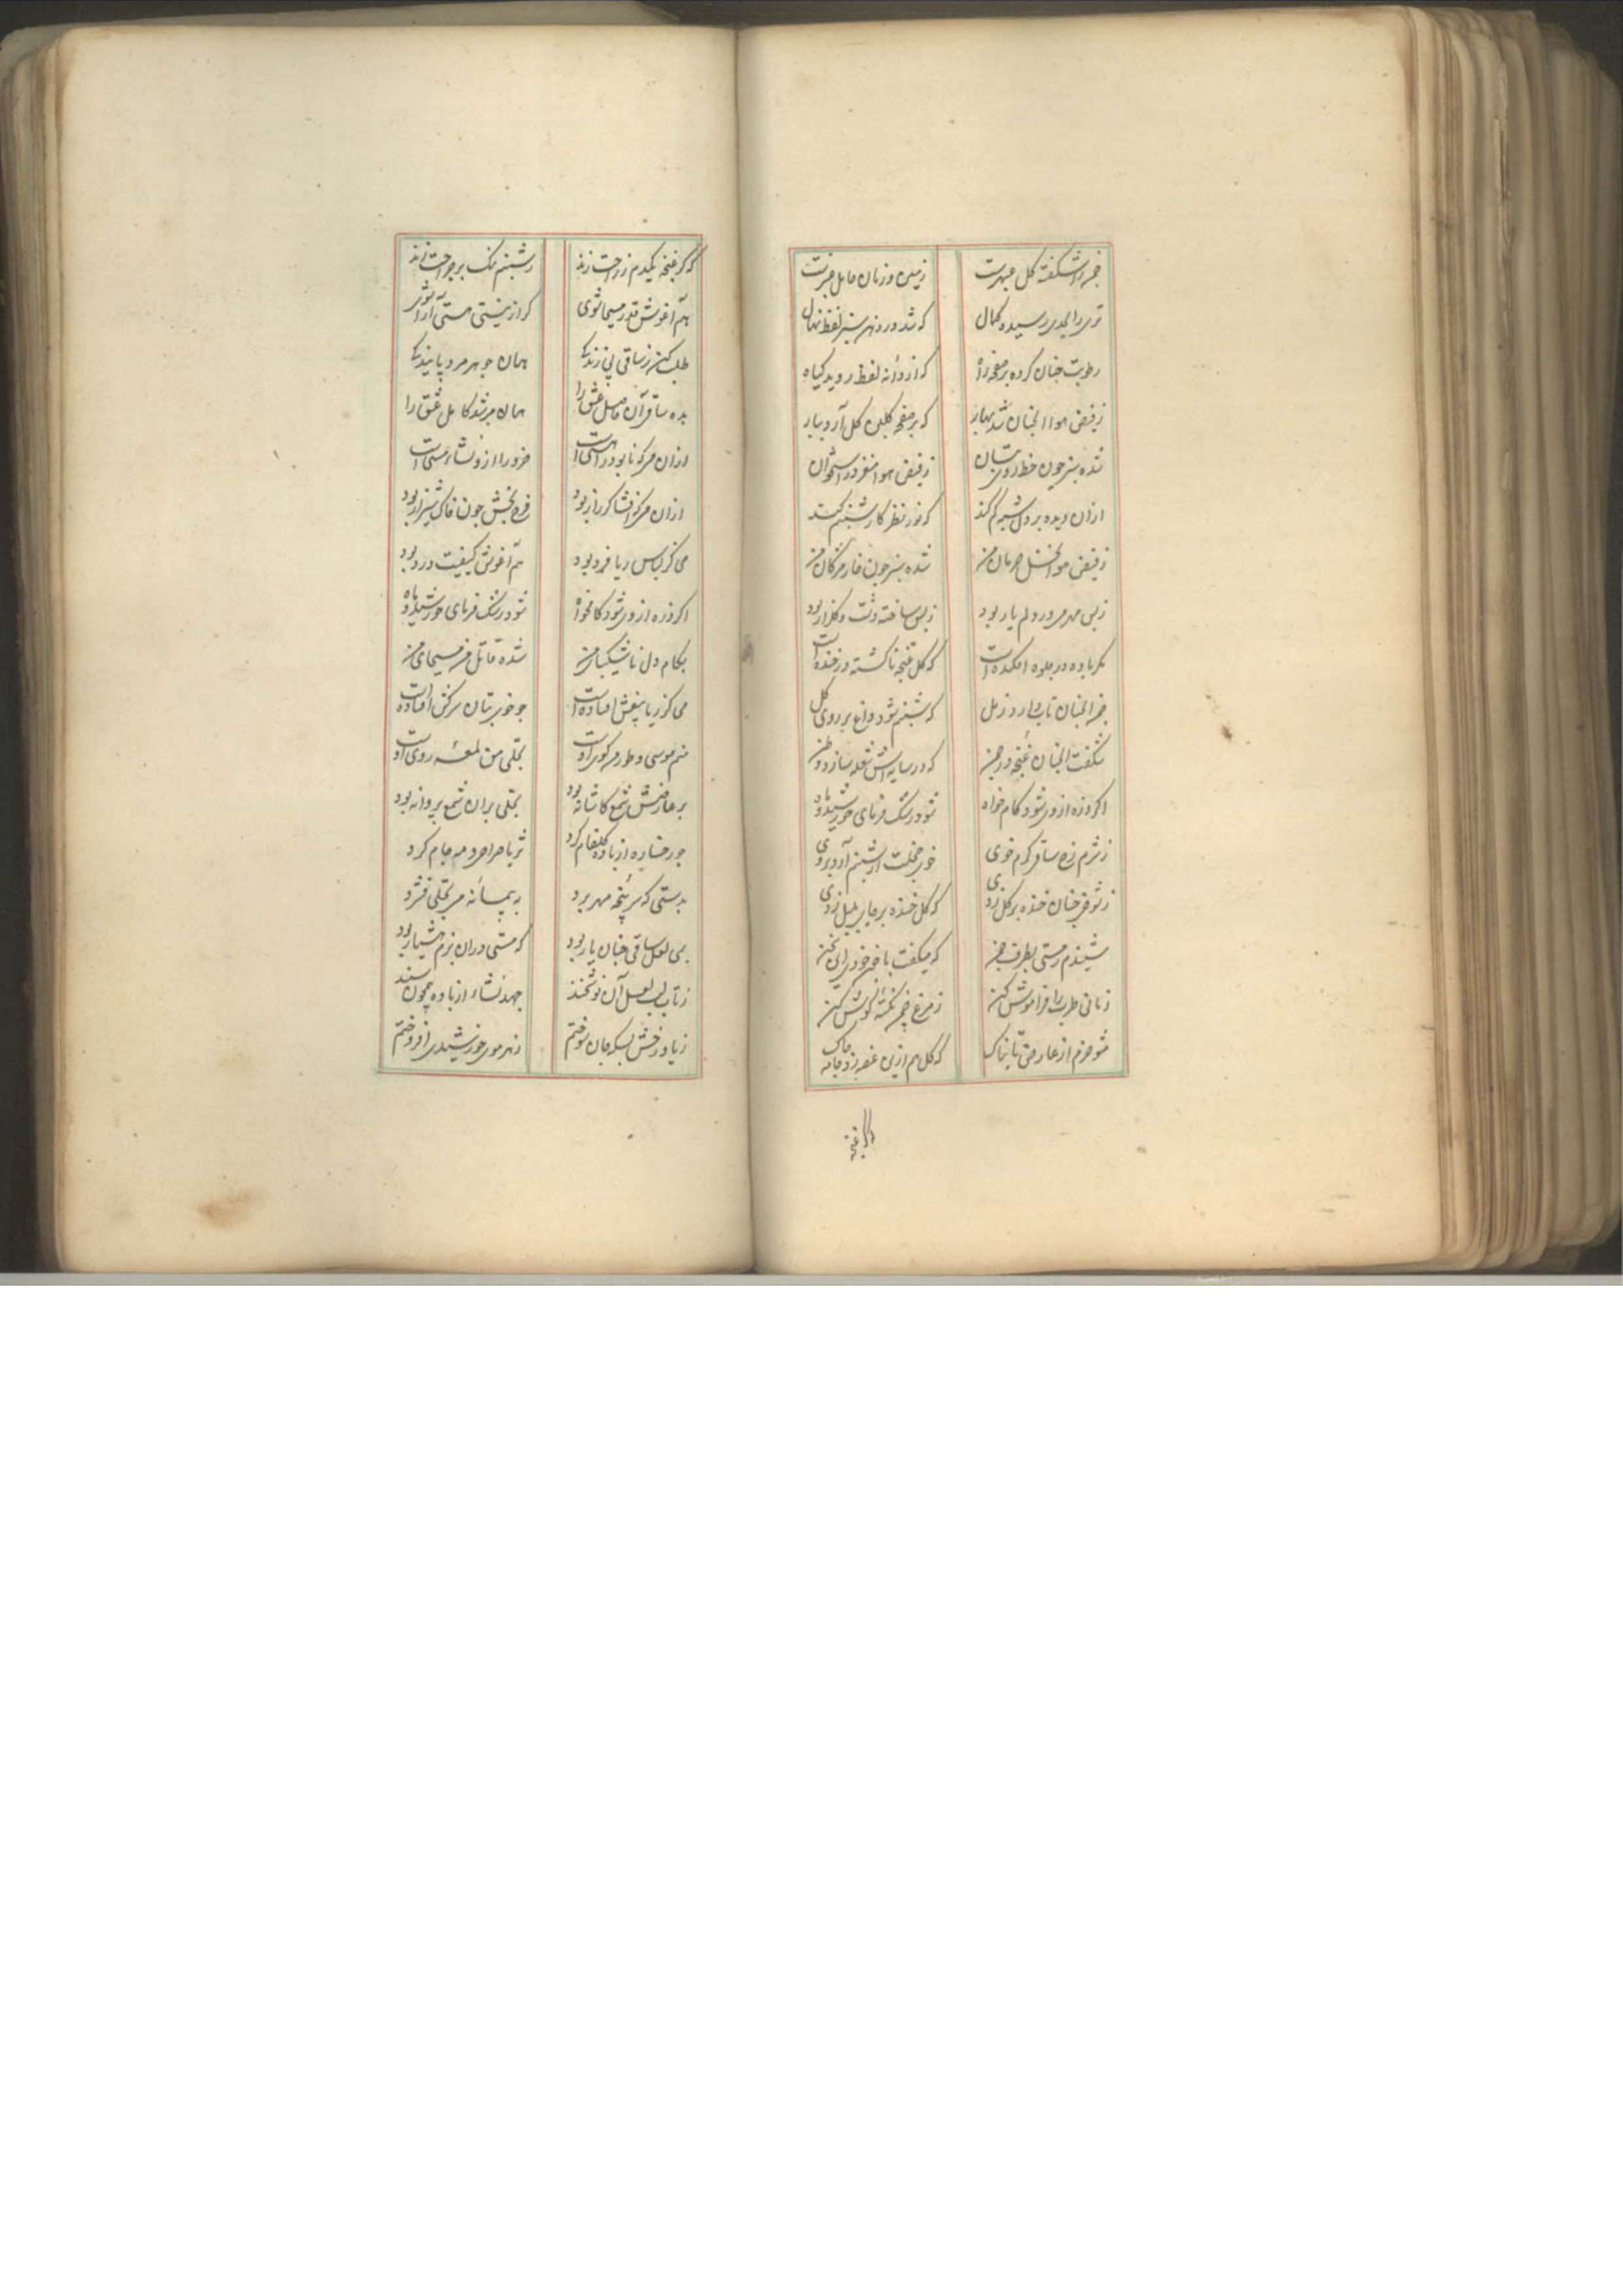 چمن را شکفته گل عبهرست زمین و زمان حامل عنبرست
نمو را بجدی رسیده کمال که شد در زمین سبز لفظ نهال
رطوبت چنان کرده بر صفحه راه که از دانه لفظ روید گیاه
ز فیض هوا آنچنان شد بهار که بر صفحه گلبن گل آرد ببار
شده سبز چون خط روی بتان ز فیض هوا مغز در استخوان
از آن دیده بر دل ستم کند که نور نظر کار شبنم کند
ز فیض هوا نخل حرمان من شده سبز چون خار مژگان من
ز بس مهر می در دلم یار بود ز بس ساخته دشت و گلزار بود
مگر باده در جلوه افکنده است که گل غنچه ناگشته در خنده است
چمن آنچنان تاب دارد ز مل که شبنم شود داغ بر روی گل
شکفت آنچنان غنچه در چمن که در سایه اش شعله سازد وطن
اگر ذره از وی شود کام خواه شود رشک فرمای خورشید و ماه
ز شرم رخ ساقی گرم خوی خوی خجلت از شبنم آرد بروی
ز شوقش چنان خنده بر گل زدی که گل خنده بر جای بلبل زدی
شنیدم ز مستی بطرف چمن که میگفت با خود این سخن
زمانی طرب را فراموش کن ز مرغ چمن نکته گوش کن
مشو خرم از عارض تابناک که گل هم ازین غصه زد جامه چاک
که گر غنچه
که گر غنچه یکدم ز راحت زند ز شبنم نمک بر جراحت زند
هم آغوش قدر مسیحا شوی که از نیستی هستی آرا شوی
طلب کن ز ساقی پی زندگی همان جوهر مرد پایندگی
بده ساقی آن حاصل عشق را همان مرشد کامل عشق را
از آن می که نابود را هستی است خرد را ازو نشاء مستی است
از آن می که افشاگر راز بود فرح بخش چون خاک شیراز بود
می کز لباس ریا فرد بود هم آغوش کیفیت درد بود
اگر ذره از وی شود کامخواه شود رشک فرمای خورشید و ماه
بکام دل ناشکیبای من شده قاتل من مسیحای من
می کز ریا بیغش افتاده است چو خوی بتان سرکش افتاده است
منم موسی و طور من کوی اوست تجلی من لمعه روی اوست
بر عارضش شمع کاشانه بود تجلی بر آن شمع پروانه بود
چو رخساره از باده گلفام کرد ثریا صراحی و مه جام کرد
بدستی که سرپنجه مهر برد به پیمانه می تجلی فشرد
می لعل ساقی چنان یار بود که مستی در آن بزم هشیار بود
ز تاب لب لعل آن نوشخند جهد نشاء از باده همچون سپند
ز یاد رخش بسکه جان سوختم ز هر موی خورشیدی افروختم